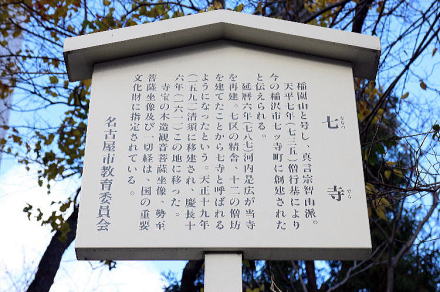 七寺
ななつ でら
稲園山と号し、真言宗智山派。
天平七年(七三五)僧行基により
今の稲沢市七ッ寺町に創建された
と伝えられる。
延暦六年(七八七)河内是広が当寺
を再建。七区の精舎、十二の僧坊
を建てたことから七寺と呼ばれる
ようになったという。天正十九年
(一五九一)清須に移建され、慶長十
六年(一六一一)この地に移った。
寺宝の木造観音菩薩坐像、勢至
菩薩坐像及び一切経は、国の重要
文化財に指定されている。
名古屋市教育委員会